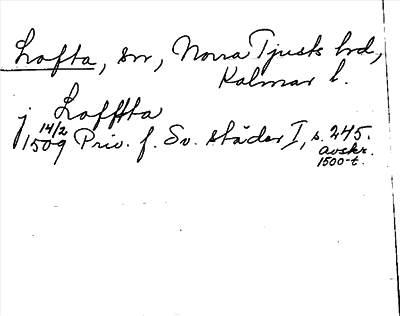 Lofta, sn, Norra Tjusts hd,
Kalmar l.
j Loffta
14/2 1509 Priv. f. Sv. städer I, s. 245.
avskr.
1500-t.